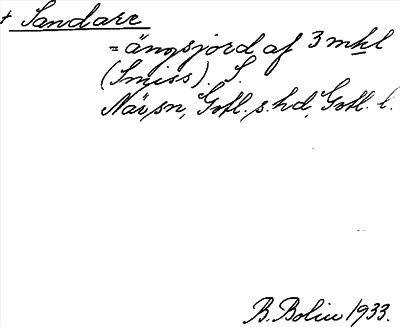 + Sandarr
= ängsjord af 3 mkl
(Smiss). S.
När sn, Gotl. s. hd, Gotl. l.
B. Bolin 1933.